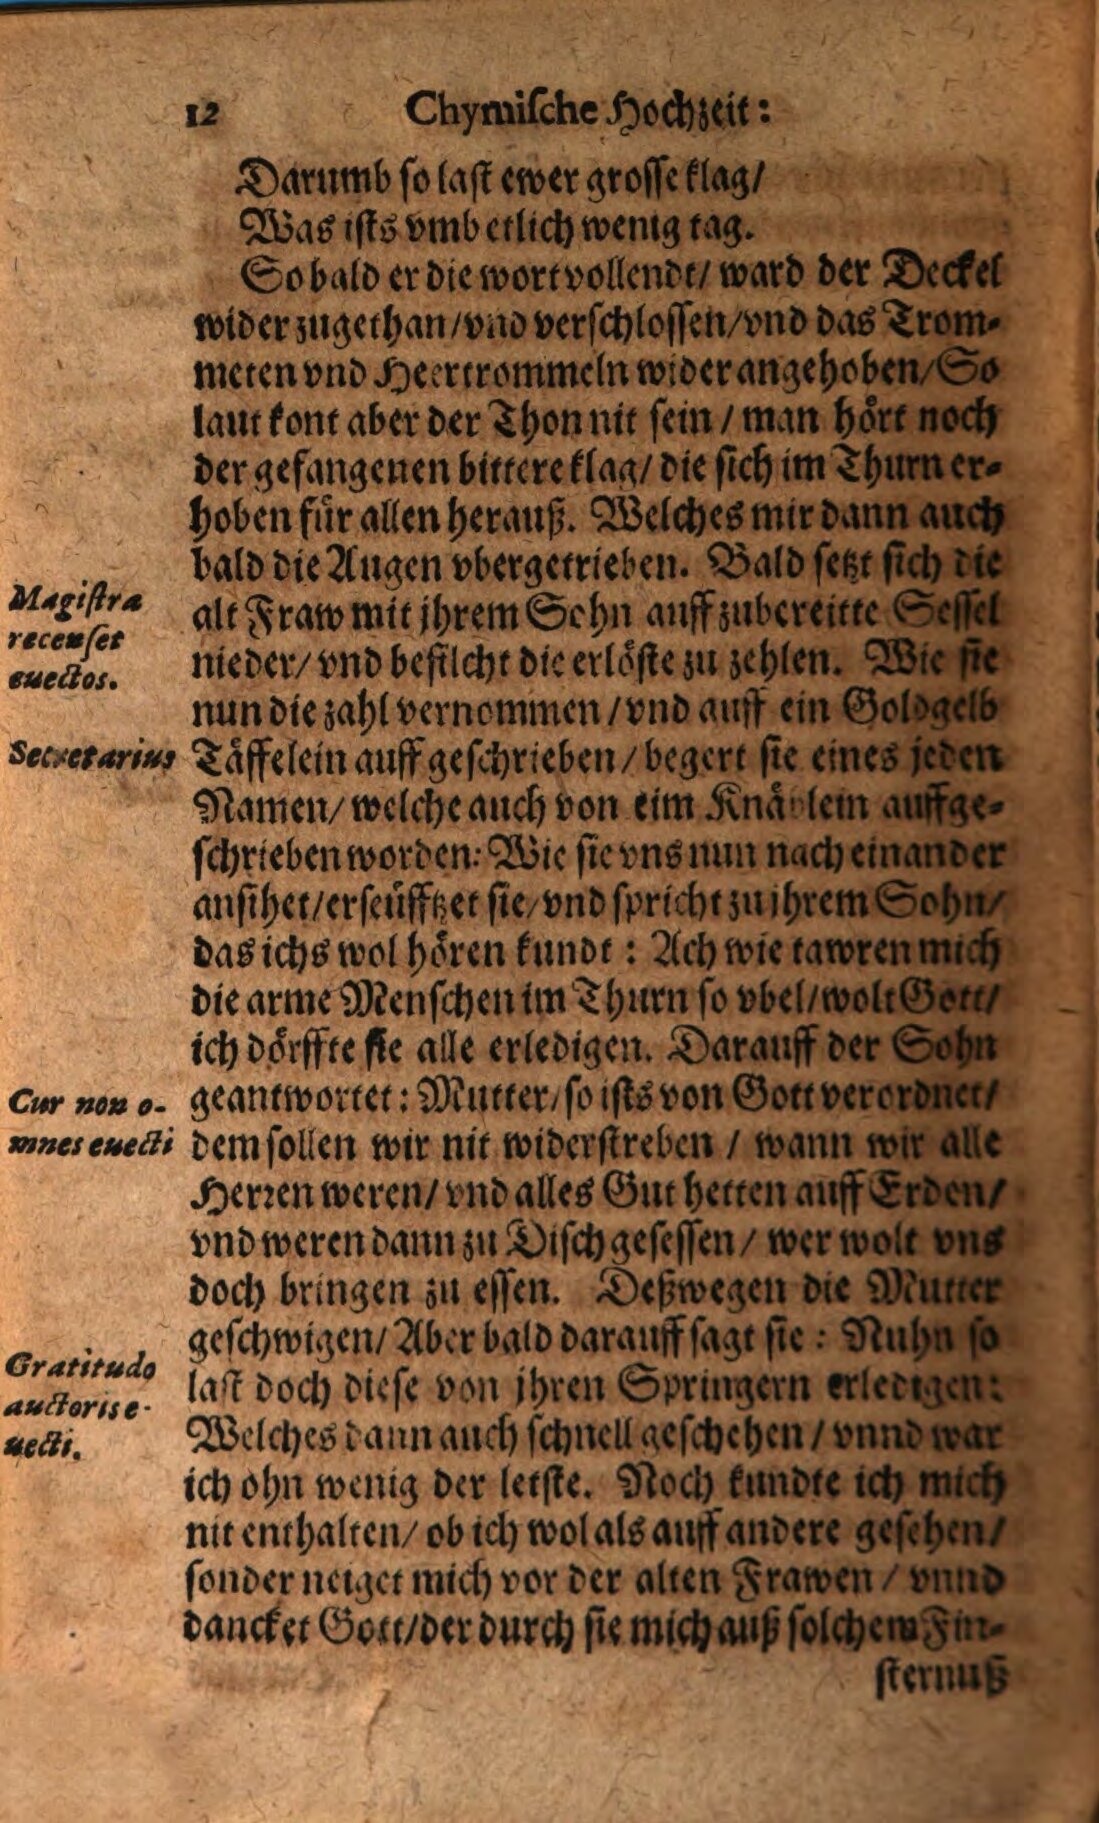 12 Chymische Hochzeit:
Darumb so last ewer grosse klag/
Was ists vmb etlich wenig tag.
So bald er die wort vollendt/ ward der Deckel
wider zugethan/vnd verschlossen/vnd das Trom-
meten vnd Heertrommeln wider angehoben/So
laut kont aber der Thon nit sein / man hört noch
der gefangenen bittere klag/ die sich im Thurn er-
hoben für allen herauß. Welches mir dann auch
bald die Augen vbergetrieben. Bald setzt sich die
Magistra
recenset
euectos.
alt Fraw mit jhrem Sohn auff zubereitte Sessel
nieder/ vnd befilcht die erlöste zu zehlen. Wie sie
nun die zahl vernommen / vnd auff ein Goldgelb
Secretarius
Täffelein auff geschrieben / begert sie eines jeden
Namen/ welche auch von eim Knäblein auffge-
schrieben worden: Wie sie vns nun nach einander
ansihet/erseufftzet sie/vnd spricht zu jhrem Sohn/
das ichs wol hören kundt : Ach wie tawren mich
die arme Menschen im Thurn so vbel/wolt Gott/
ich dörffte sie alle erledigen. Darauff der Sohn
Cur non o-
mnes euecti
geantwortet: Mutter/so ists von Gott verordnet/
dem sollen wir nit widerstreben / wann wir alle
Herren weren/ vnd alles Gut hetten auff Erden/
vnd weren dann zu Disch gesessen / wer wolt vns
doch bringen zu essen. Deßwegen die Mutter
geschwigen/ Aber bald darauff sagt sie : Nuhn so
Gratitudo
auctoris e-
uecti.
last doch diese von jhren Springern erledigen:
Welches dann auch schnell geschehen / vnnd war
ich ohn wenig der letste. Noch kundte ich mich
nit enthalten/ ob ich wol als auff andere gesehen/
sonder neiget mich vor der alten Frawen / vnnd
dancket Gott/der durch sie mich auß solchem Fin-
sternuß